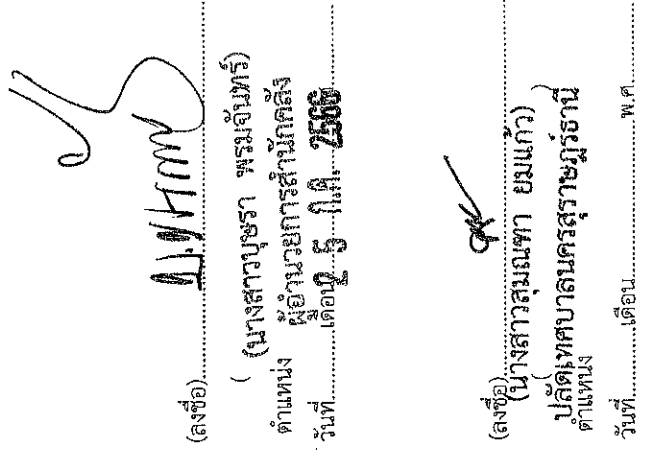 (ลงชื่อ)
(นางสาวบุษรา พรมจันทร์)
ตำแหน่ง ผู้อำนวยการสำนักคลัง
วันที่ เดือน ก.ค. 2566
(ลงชื่อ)
(นางสาวสุมณฑา ยมแก้ว)
ปลัดเทศบาลนครสุราษฎร์ธานี
ตำแหน่ง
วันที่ เดือน พ.ศ.